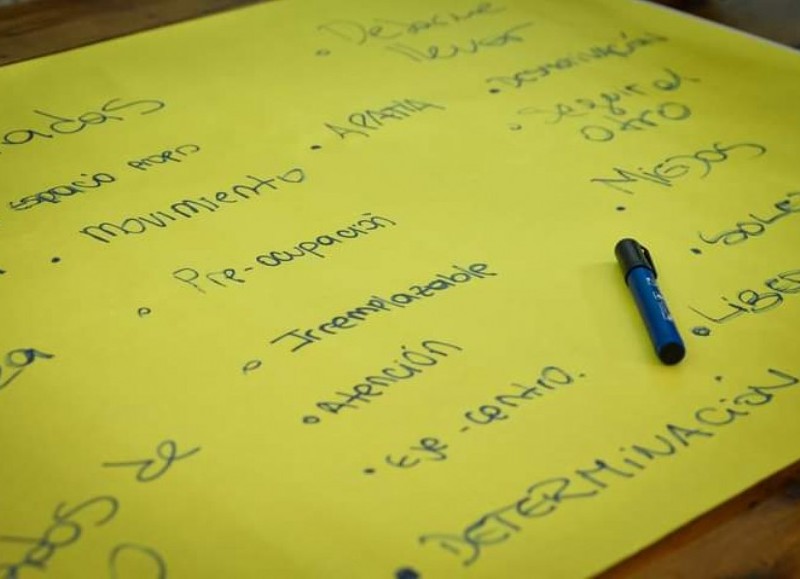 Dejarme
llevar
• DESMOTIVACIÓN
• Seguir al
otro
• APATIA
• MIEDOS
ESPACIO PROPIO
• MOVIMIENTO
• Pre-ocupación
• Irremplazable
• Atención
• EJE-CENTRO.
• DETERMINACIÓN